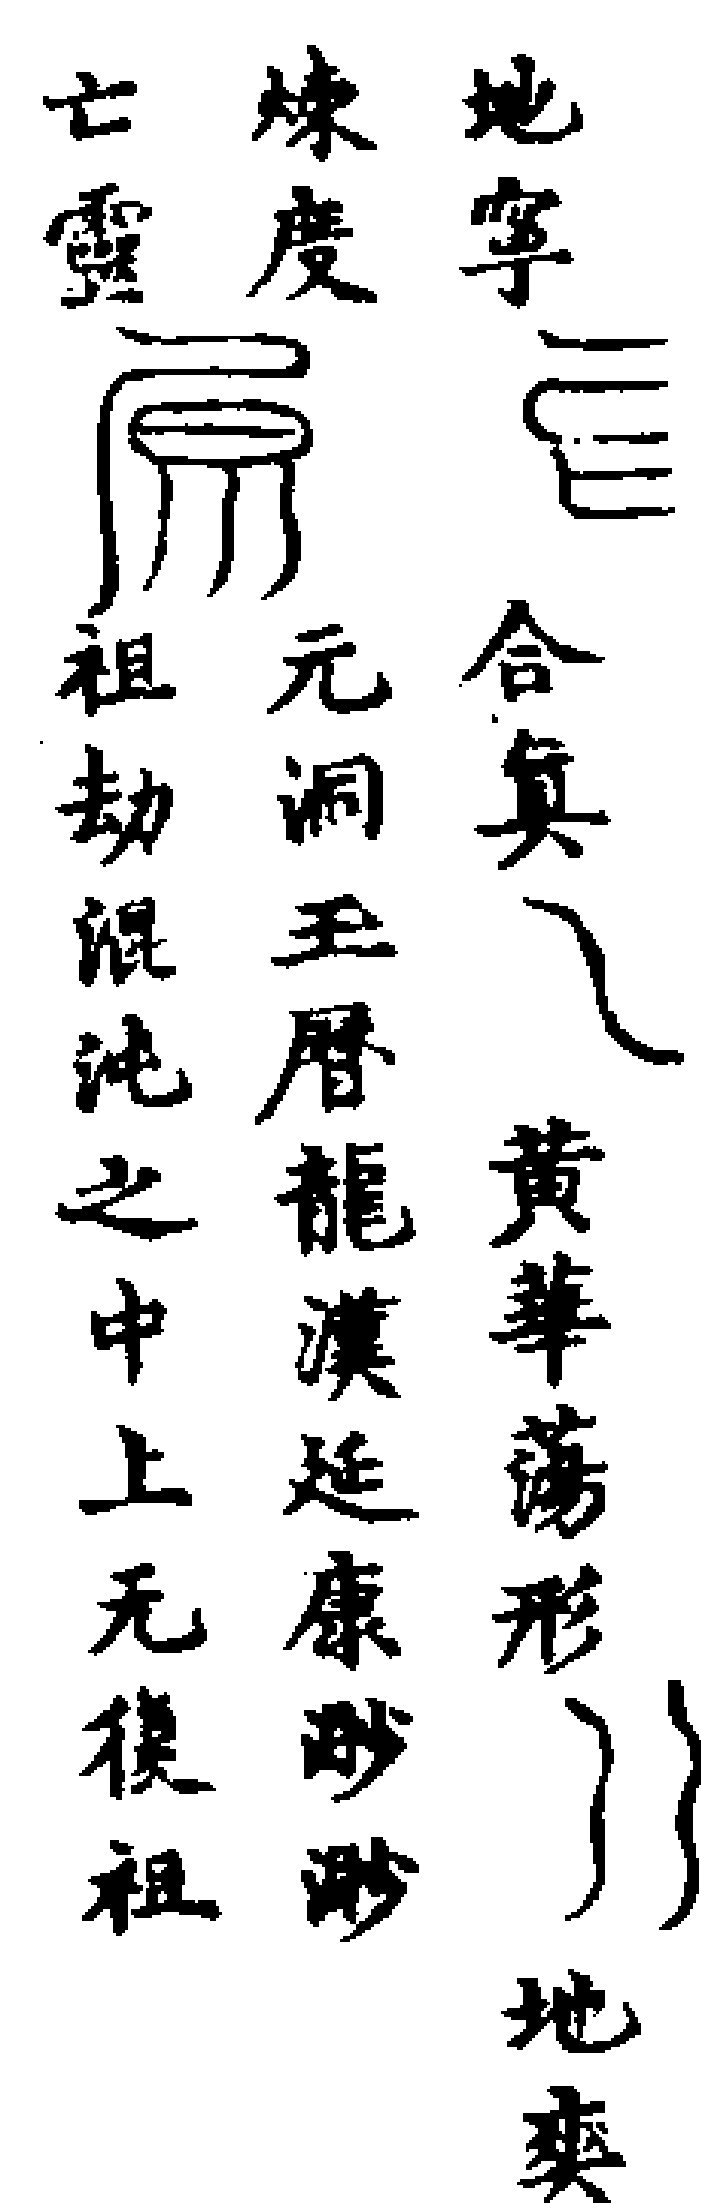 地寧 合真 黃華蕩形 地奕
煉度 元洞玉曆龍漢延康眇眇
亡靈 祖劫混沌之中上无復祖